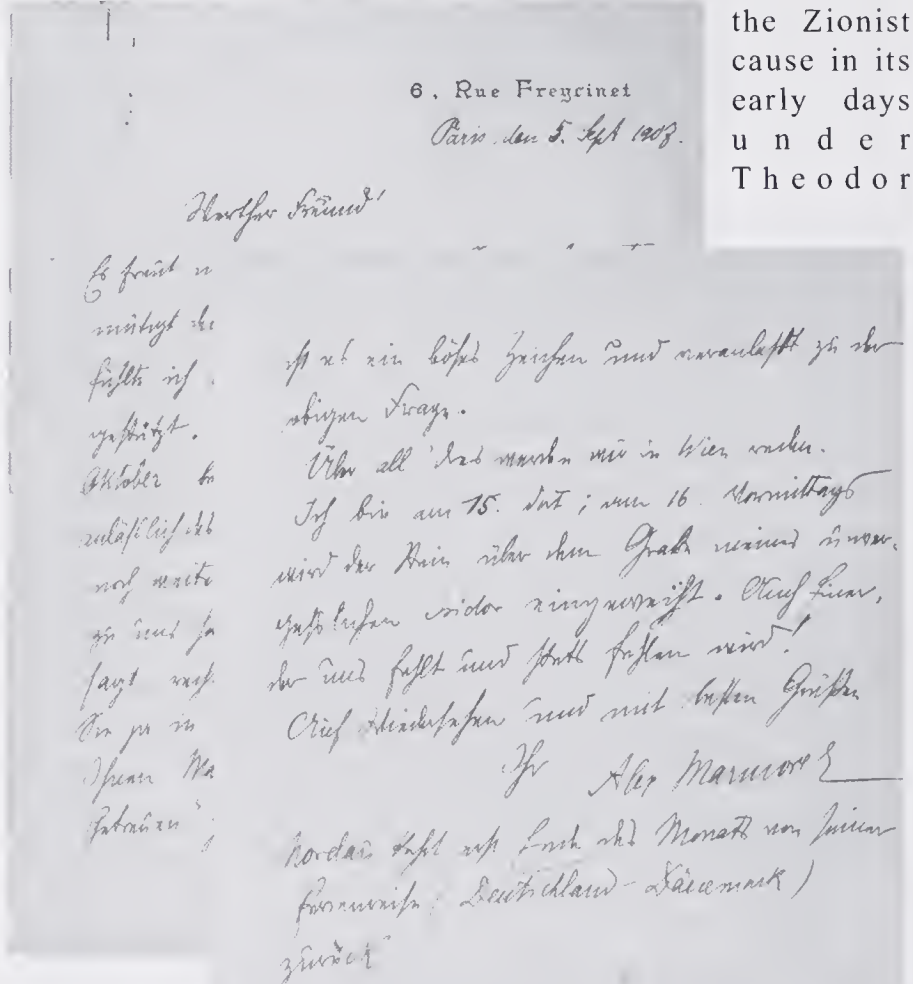 the Zionist
cause in its
early days
under
Theodor
6, Rue Freycinet
Paris, den 5. Sept
Werther Freund!
Es freut
fühlte ich
gestützt.
Oktober
anläßlich des
noch
zu uns
sagt
Sie ja in
Ihrem
Getreuen
ist es ein böses Zeichen und veranlaßt zu der
obigen Frage.
Über all' das werden wir in Wien reden.
Ich bin am 15. dort; am 16. Vormittags
wird der Stein über dem Grabe meines unver-
geßlichen Isidor eingeweiht. Auch Einer,
der uns fehlt und stets fehlen wird!
Auf Wiedersehen und mit besten Grüßen
Ihr Alex Marmorek
Nordau kehrt erst Ende des Monats von seiner
Ferienreise (Deutschland - Dänemark)
zurück